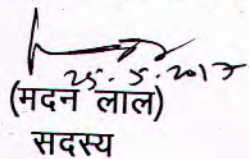 25.5.2017
(मदन लाल)
सदस्य